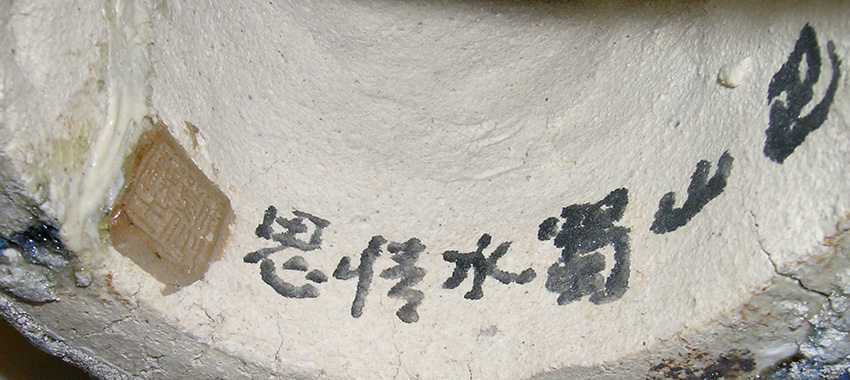 巴山蜀水情思